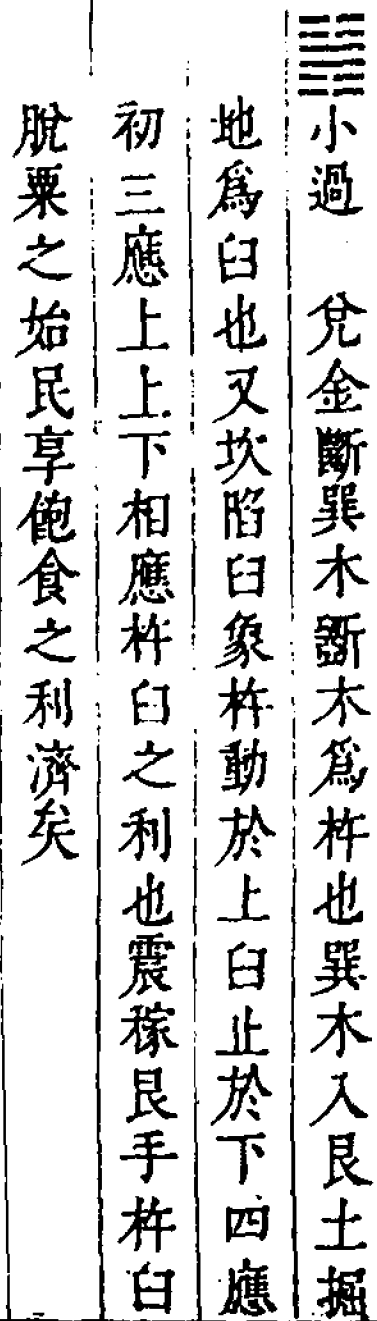 ䷽小過　兌金斷巽木斷木爲杵也巽木入艮土掘
地爲臼也又坎陷臼象杵動於上臼止於下四應
初三應上上下相應杵臼之利也震稼艮手杵臼
脫粟之始民享飽食之利濟矣